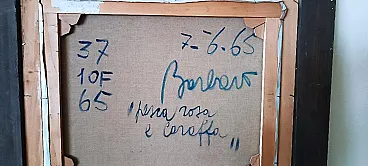 37
10F
65
7-6.65
Barbaro
"pesca rosa
e caraffa"